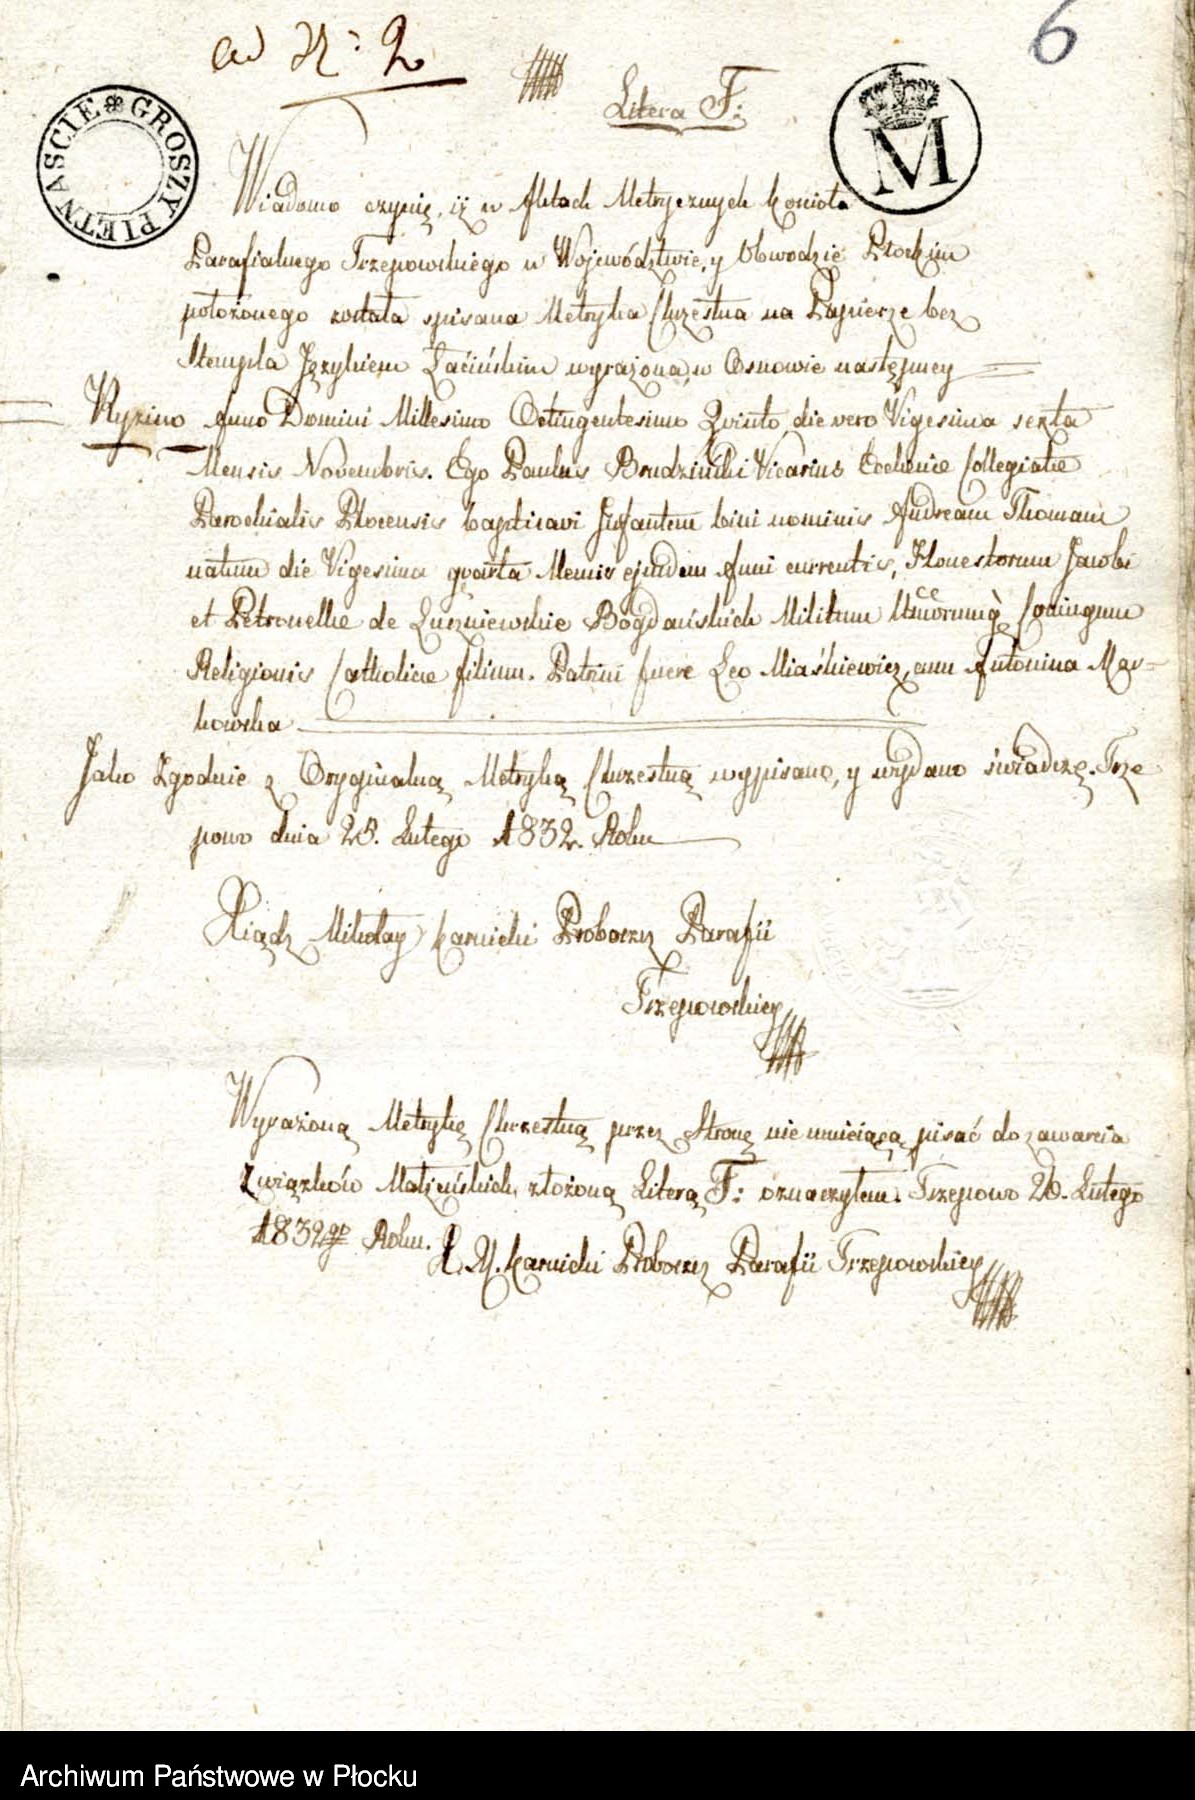 ad N: 2
6
Litera F:
GROSZY PIETNASCIE
M
Wiadomo czynię, iż w Aktach Metrycznych Kościoła
Parafialnego Trzepowskiego w Województwie, y Obwodzie Płockim
położonego została spisana Metryka Chrzestna na Papierze bez
Stempla Językiem Łacińskim wyrażona, w Osnowie następney
Anno Domini Millesimo Octingentesimo Qvinto die vero Vigesima sexta
Mensis Novembris. Ego Paulus Brudziński Vicarius Ecclesiæ Collegiatæ
Parochialis Plocensis baptisavi Infantem bini nominis Andream Thomam
natum die Vigesima qvarta Mensis ejusdem Anni currentis, Honestorum Jacobi
et Petronellæ de Bogdańskich Militum Conjugum
Religionis Catholicæ filium. Patrini fuere Leo Miaśkiewicz, cum Antonina Mar-
kowska
Jako Zgodnie z Oryginalną Metryką Chrzestną wypisano, y wydano świadczę. Trze
powo dnia 25. Lutego 1832. Roku
Xiądz Mikołay Karnicki Proboszcz Parafii
Trzepowskiey
Wyrażoną Metrykę Chrzestną przez Stronę nie umieiącą pisać do zawarcia
Związków Małżeńskich, złożoną Literą F: oznaczyłem. Trzepowo 26. Lutego
1832go Roku.
X. M. Karnicki Proboszcz Parafii Trzepowskiey
Archiwum Państwowe w Płocku